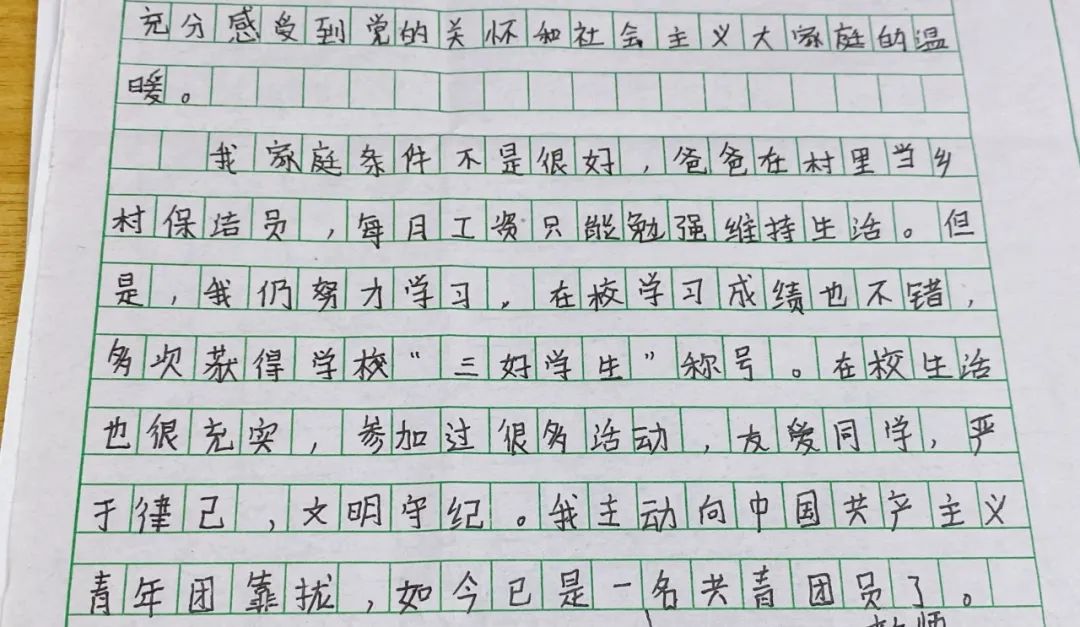 充分感受到党的关怀和社会主义大家庭的温
暖。
我家庭条件不是很好，爸爸在村里当乡
村保洁员，每月工资只能勉强维持生活。但
是，我仍努力学习，在校学习成绩也不错，
多次获得学校“三好学生”称号。在校生活
也很充实，参加过很多活动，友爱同学，严
于律己，文明守纪。我主动向中国共产主义
青年团靠拢，如今已是一名共青团员了。